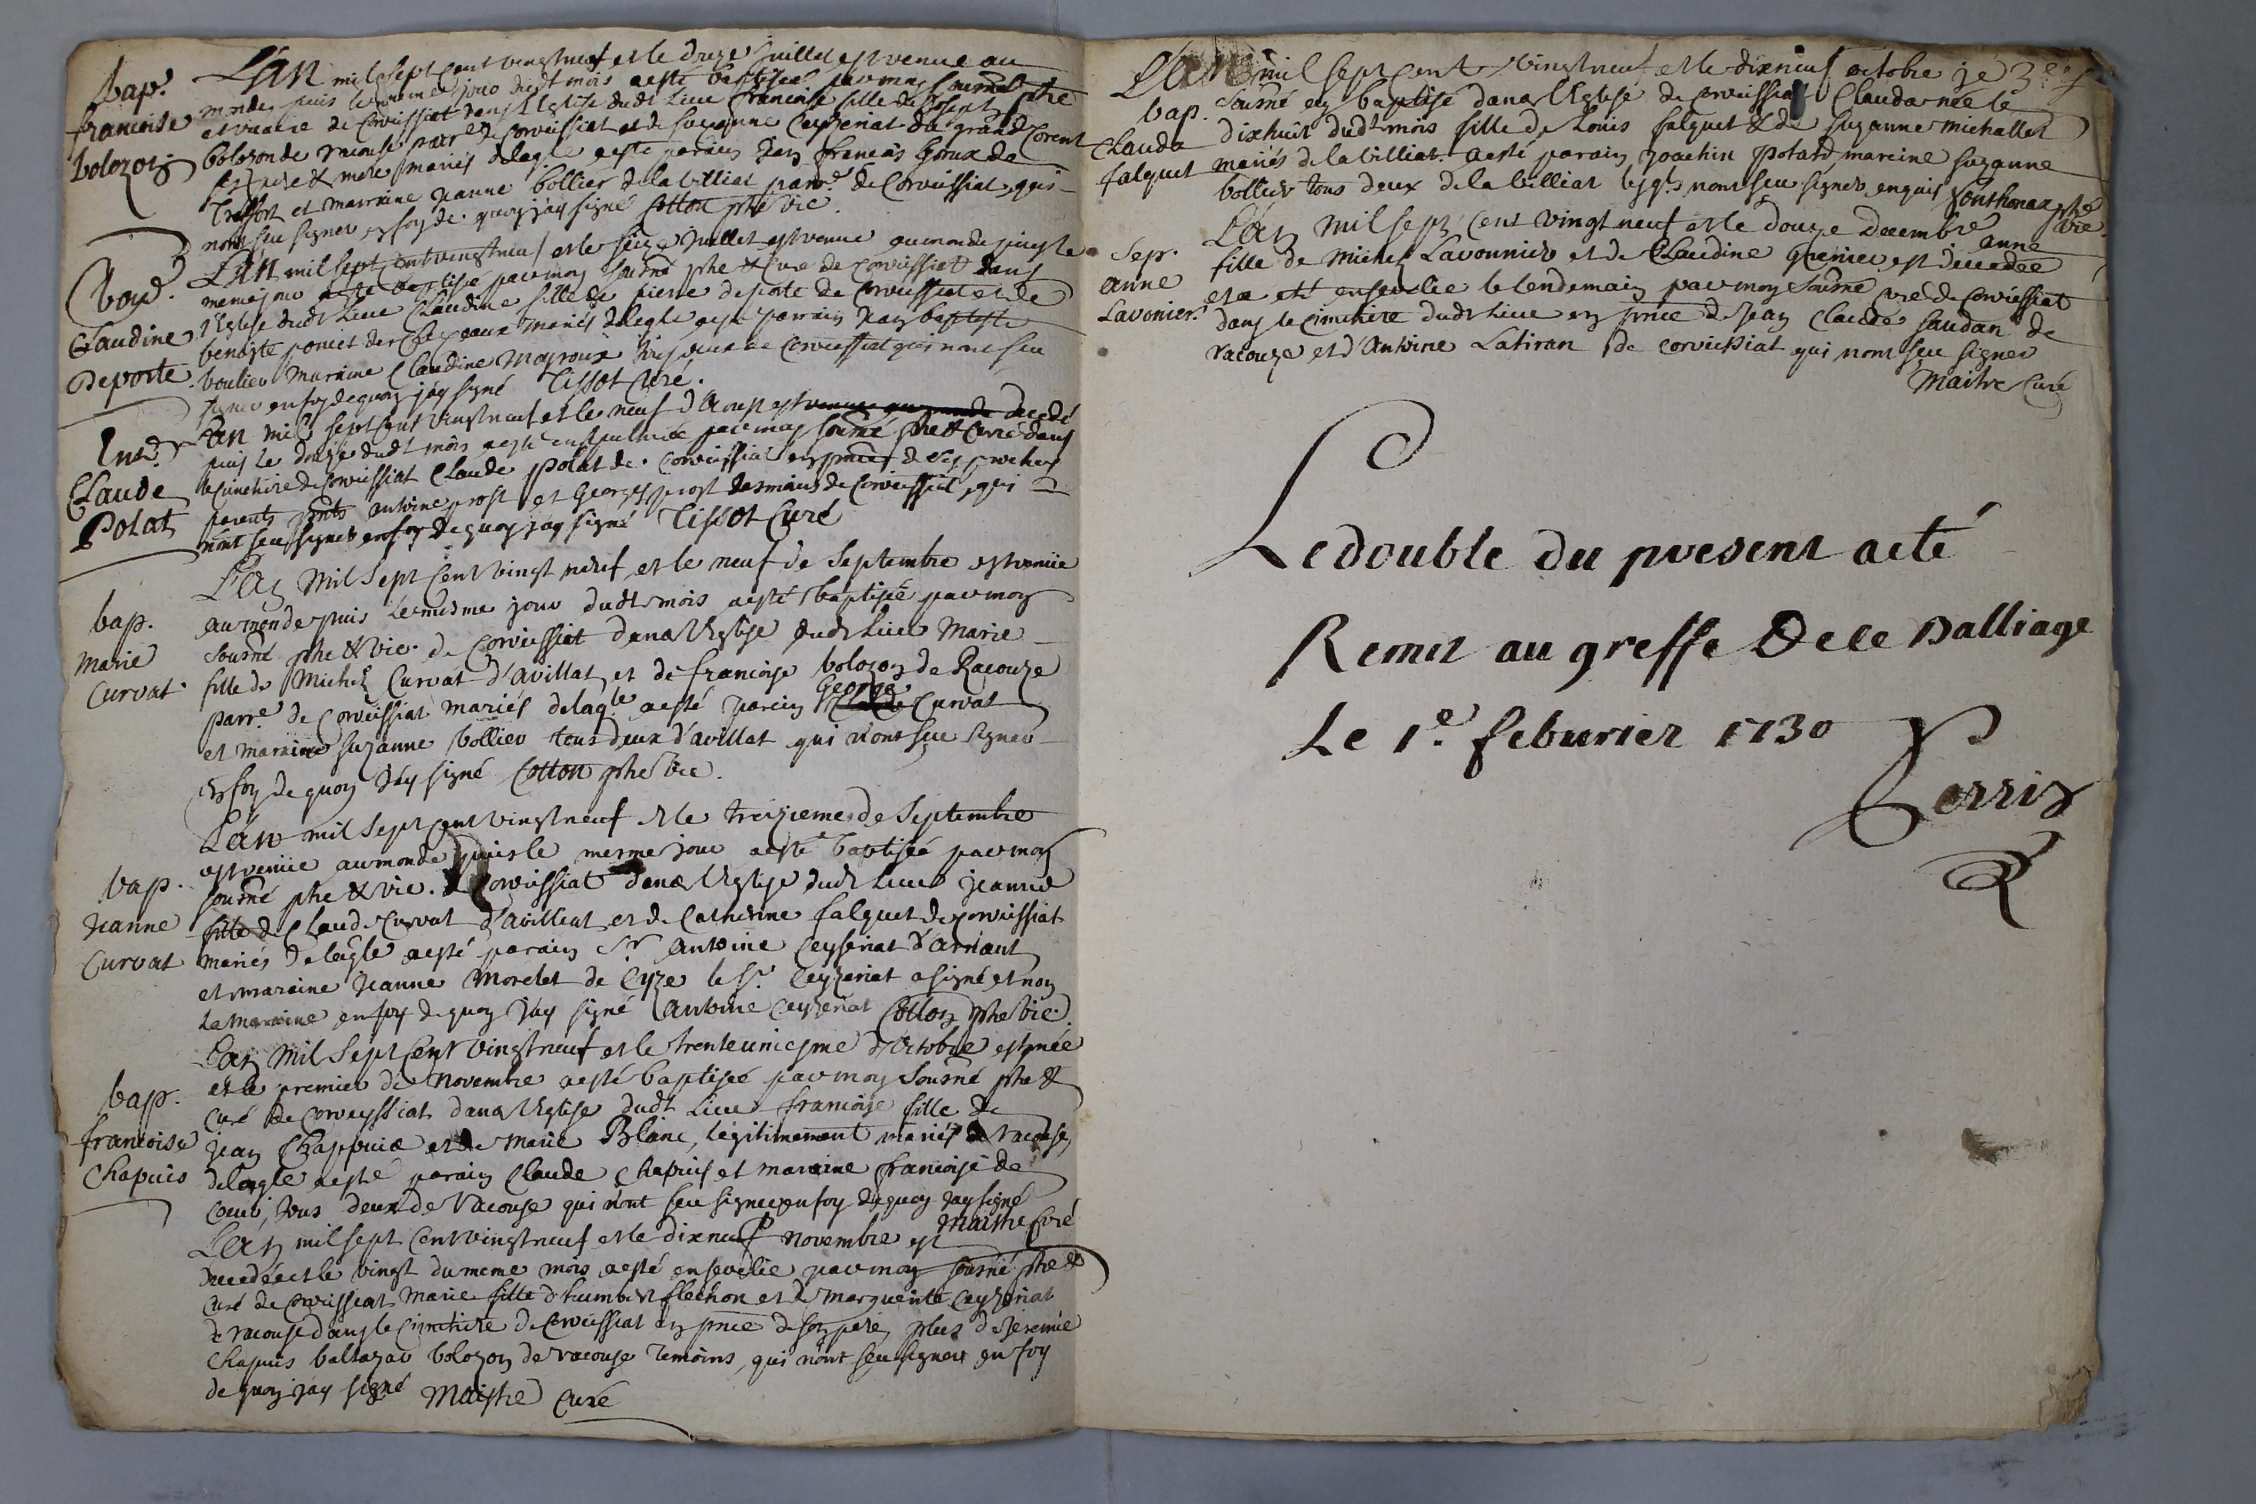 bap.
francoise
bolozon
L'an mil sept cent vingt neuf et le douze Juillet est venue au
monde puis le meme jour dudt mois a esté baptisée par moy sousné ptre
et vicaire de Corveissiat dans l'Eglise dudt Lieu francoise fille de Joseph
bolozon de racouse parr.e de corveissiat et de suzanne Ceyzeriat du grand Corent
ses pere et mere mariés delaq.le a esté parain Jean francois Goux de
Treffort et marraine Jeanne bollier de la villiat parr.e de Corveissiat qui
n'ont seu signer en foy de quoy j'ay signé Cotton ptre vic.
bap.
Claudine
Deporte
L'an mil sept cent vingt neuf et le seize Juillet est venue au monde puis le
meme jour a esté baptisée par moy sousné ptre et Curé de corveissiat dans
l'Eglise dudt Lieu Claudine fille de pierre deporte de Corveissiat et de
benoiste poncet de mariés delaqle a esté parrain Jean baptiste
boulier Maraine Claudine Mayroux tous deux de Corveissiat qui n'ont seu
signer en foy de quoy j'ay signé Tissot Curé.
Claude
Polat
L'an mil sept cent vingt neuf et le neuf d'Aoust est venue au monde decedé
puis le dudt mois a esté par moy sousné ptre et Curé dans
le cimetiere de Corveissiat Claude polat de Corveissiat en pnce de ses proches
parents pnts antoine prost et George prost de Corveissiat, qui
n'ont seu signer en foy de quoy j'ay signé Tissot Curé
bap.
Marie
Curvat
L'an Mil Sept Cent vingt neuf et le neuf de Septembre est venüe
au monde puis le mesme jour dudt mois a esté baptisée par moy
sousné ptre et vic. de Corveissiat dans l'Eglise dudt Lieu Marie
fille de Michel Curvat d'avillat et de francoise bolozon de Racouze
parr.e de Corveissiat mariés delaq.le a esté parain Claude George Curvat
et maraine Suzanne bollier tous deux d'avillat qui n'ont seu signer
En foy de quoy j'ay signé Cotton ptre vic.
bap.
Jeanne
Curvat
L'an mil sept cent vingt neuf et le treizieme de Septembre
est venüe au monde puis le mesme jour a esté baptisée par moy
sousné ptre et vic. de Corveissiat dans l'Eglise dudt Lieu Jeanne
fille de Claude Curvat d'avilliat et de Catherine falquet de corveissiat
mariés delaqle a esté parain Sr. Antoine Ceyseriat d'arnant
et maraine Jeanne Morelet de Cyze le Sr. Ceyzeriat a signé et non
La maraine en foy de quoy j'ay signé Antoine Ceyzeriat Cotton ptre vic.
bap.
francoise
Chapuis
L'an Mil Sept Cent vingt neuf et le trente unieme d'octobre est née
et le premier de Novembre a esté baptisée par moy sousné ptre et
curé de Corveyssiat dans l'Eglise dudt Lieu francoise fille de
Jean Chappuis et de Marie Blanc, legitimement mariés de racouse,
delaqle a esté parain Claude Chapuis et maraine francoise de
tous deux de Racouse qui n'ont seu signer en foy de quoy j'ay signé
Maitre Curé
L'an mil sept cent vingt neuf et le dix neuf novembre est
decedée et le vingt du meme mois a esté ensevelie par moy sousné ptre et
curé de Corveissiat Marie fille d'humbert flechon et de Marguerite Ceyzeriat
de racouse dans le Cimetiere de Corveissiat en pnce de son pere, plus de Jeremie
Chapuis baltazar bolozon de racouse temoins, qui n'ont seu signer en foy
de quoy j'ay signé Maistre Curé
bap.
Clauda
falquet
L'an mil sept cent vingt neuf et le dix neuf octobre je
sousné ay baptisé dans l'Eglise de Corveissiat Clauda née le
dixhuit dudt mois fille de Louis falquet et de Suzanne Michallet
mariés de la villiat. a esté parain Joachin Potard mareine Suzanne
bollier tous deux de la villiat lesqls n'ont seu signer enquis Gonthonax ptre
vic.
Sep.
anne
Lavonier.
L'an Mil sept cent vingt neuf et le douze Decembre anne
fille de Michel Lavonnier et de Claudine Grenier est decedée
et a eté ensevelie le lendemain par moy Sousné curé de corveissiat
dans le cimetiere dudt Lieu en pnce de Jean Claude Saudan de
racouze et d'Antoine Latiran de corveissiat qui n'ont seu signer
Maitre Curé
Le double du present acté
Remis au greffe De le Balliage
Le 1.e feburier 1730
Perrin